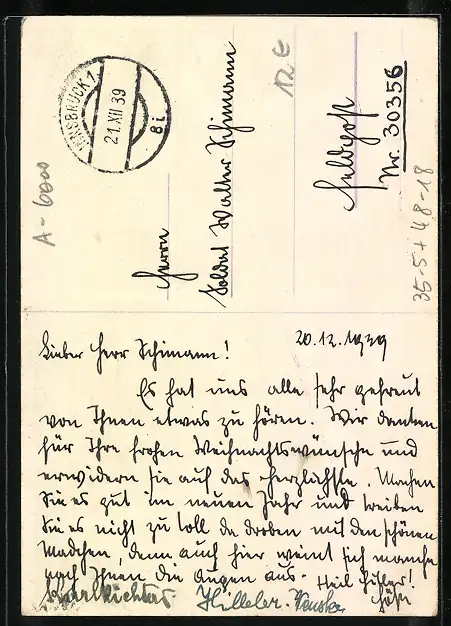 INNSBRUCK 1
21.XII 39
8i
A-6000
12 €
Herrn
Soldat Walter Schimann
Feldpost
Nr. 30356
35-5+48-18
20.12.1939
Lieber Herr Schimann!
Es hat uns alle sehr gefreut
von Ihnen etwas zu hören. Wir danken
für Ihre frohen Weihnachtswünsche und
erwidern sie auf das herzlichste. Machen
Sie es gut im neuen Jahr und treiben
Sie es nicht zu toll da droben mit den schönen
Mädchen, denn auch hier weint sich manche
nach Ihnen die Augen aus. Heil Hitler!